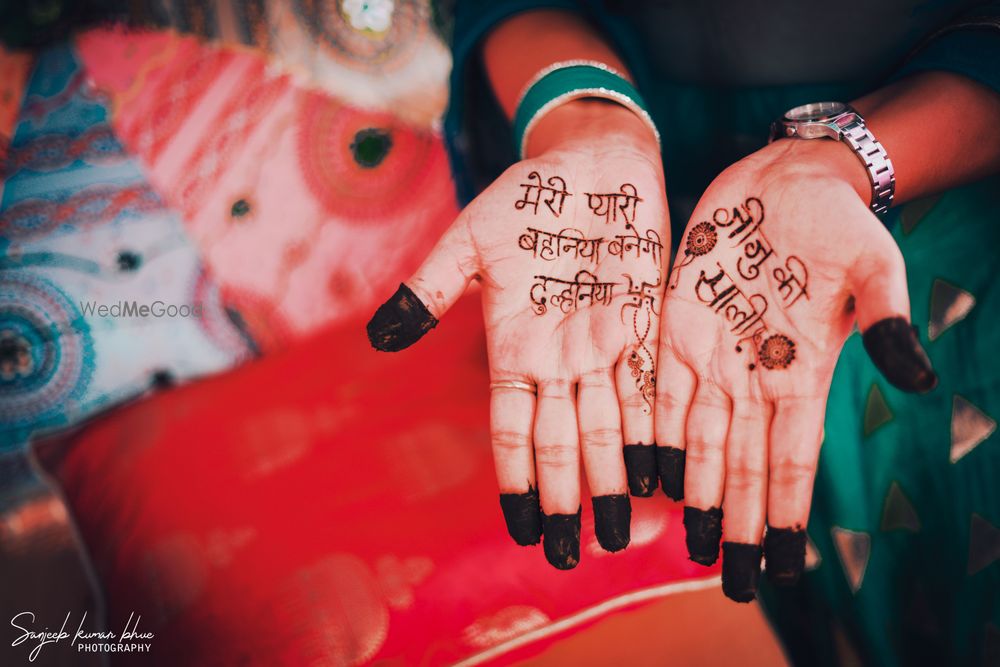 मेरी प्यारी
बहनिया बनेगी
दुल्हनिया
जीजु की
साली
WedMeGood
Sanjeeb kumar bhue
PHOTOGRAPHY